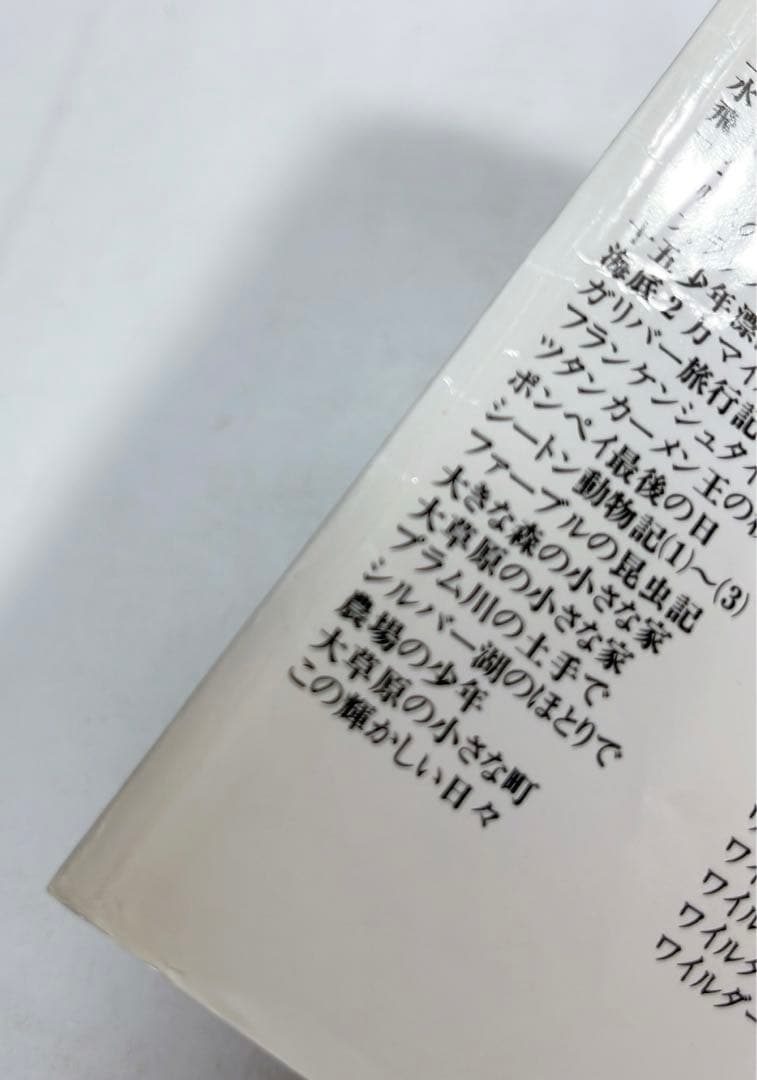 水
飛
の
十五少年漂
海底2万マイ
ガリバー旅行記
フランケンシュタイ
ツタンカーメン王の
ポンペイ最後の日
シートン動物記(1)〜(3)
ファーブルの昆虫記
大きな森の小さな家
大草原の小さな家
プラム川の土手で
シルバー湖のほとりで
農場の少年
大草原の小さな町
この輝かしい日々
ワイ
ワイル
ワイルダ
ワイルダー